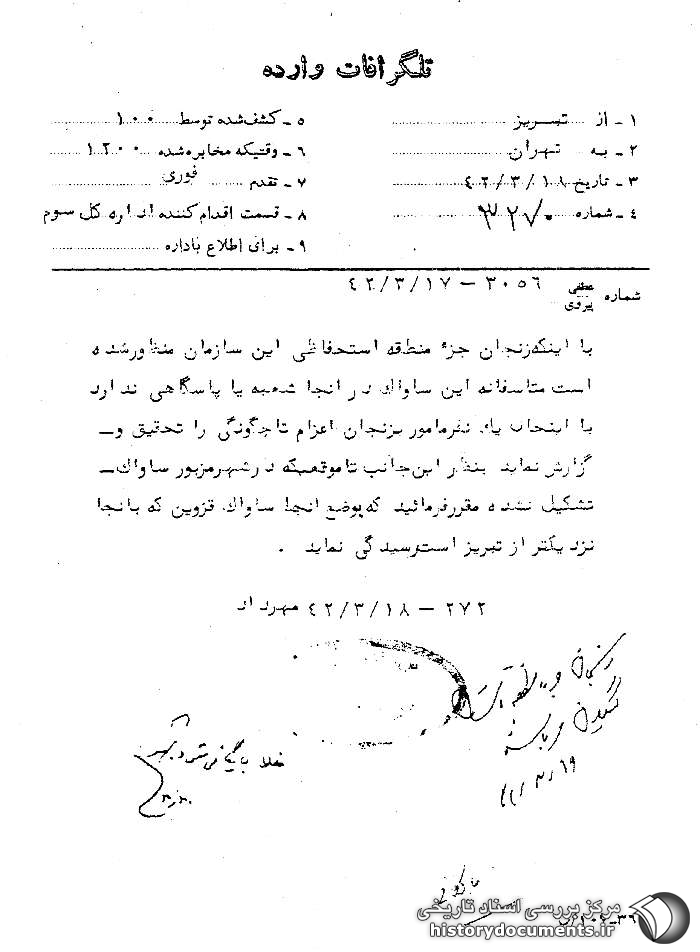 تلگرافات وارده
۱ـ از تبریز
۲ـ به تهران
۳ـ تاریخ ۴۲/۳/۱۸
۴ـ شماره ۳۲۷۰
۵ـ کشف شده توسط ۱۰۰
۶ـ وقتیکه مخابره شده ۱۲۰۰
۷ـ تقدم فوری
۸ـ قسمت اقدام کننده اداره کل سوم
۹ـ برای اطلاع باداره
شماره عطفی پیروی ۳۰۵۶ – ۴۲/۳/۱۷
با اینکه زنجان جزء منطقه استحفاظی این سازمان منظور شده
است متاسفانه این ساواک در انجا شعبه یا پاسگاهی ندارد
با اینحاب یک نفر مامور بزنجان اعزام تا چگونگی را تحقیق و ـ
گزارش نماید بنظر این جانب تا موقعیکه در شهر مزبور ساواک ـ
تشکیل نشده مقرر فرمائید که بوضع انجا ساواک قزوین که بانجا
نزدیکتر از تبریز است رسیدگی نماید .
۲۷۲ – ۴۲/۳/۱۸ مهرداد
زنجان جزء منطقه
۱۹
فعلا بایگانی شود
مرکز بررسی اسناد تاریخی
historydocuments.ir